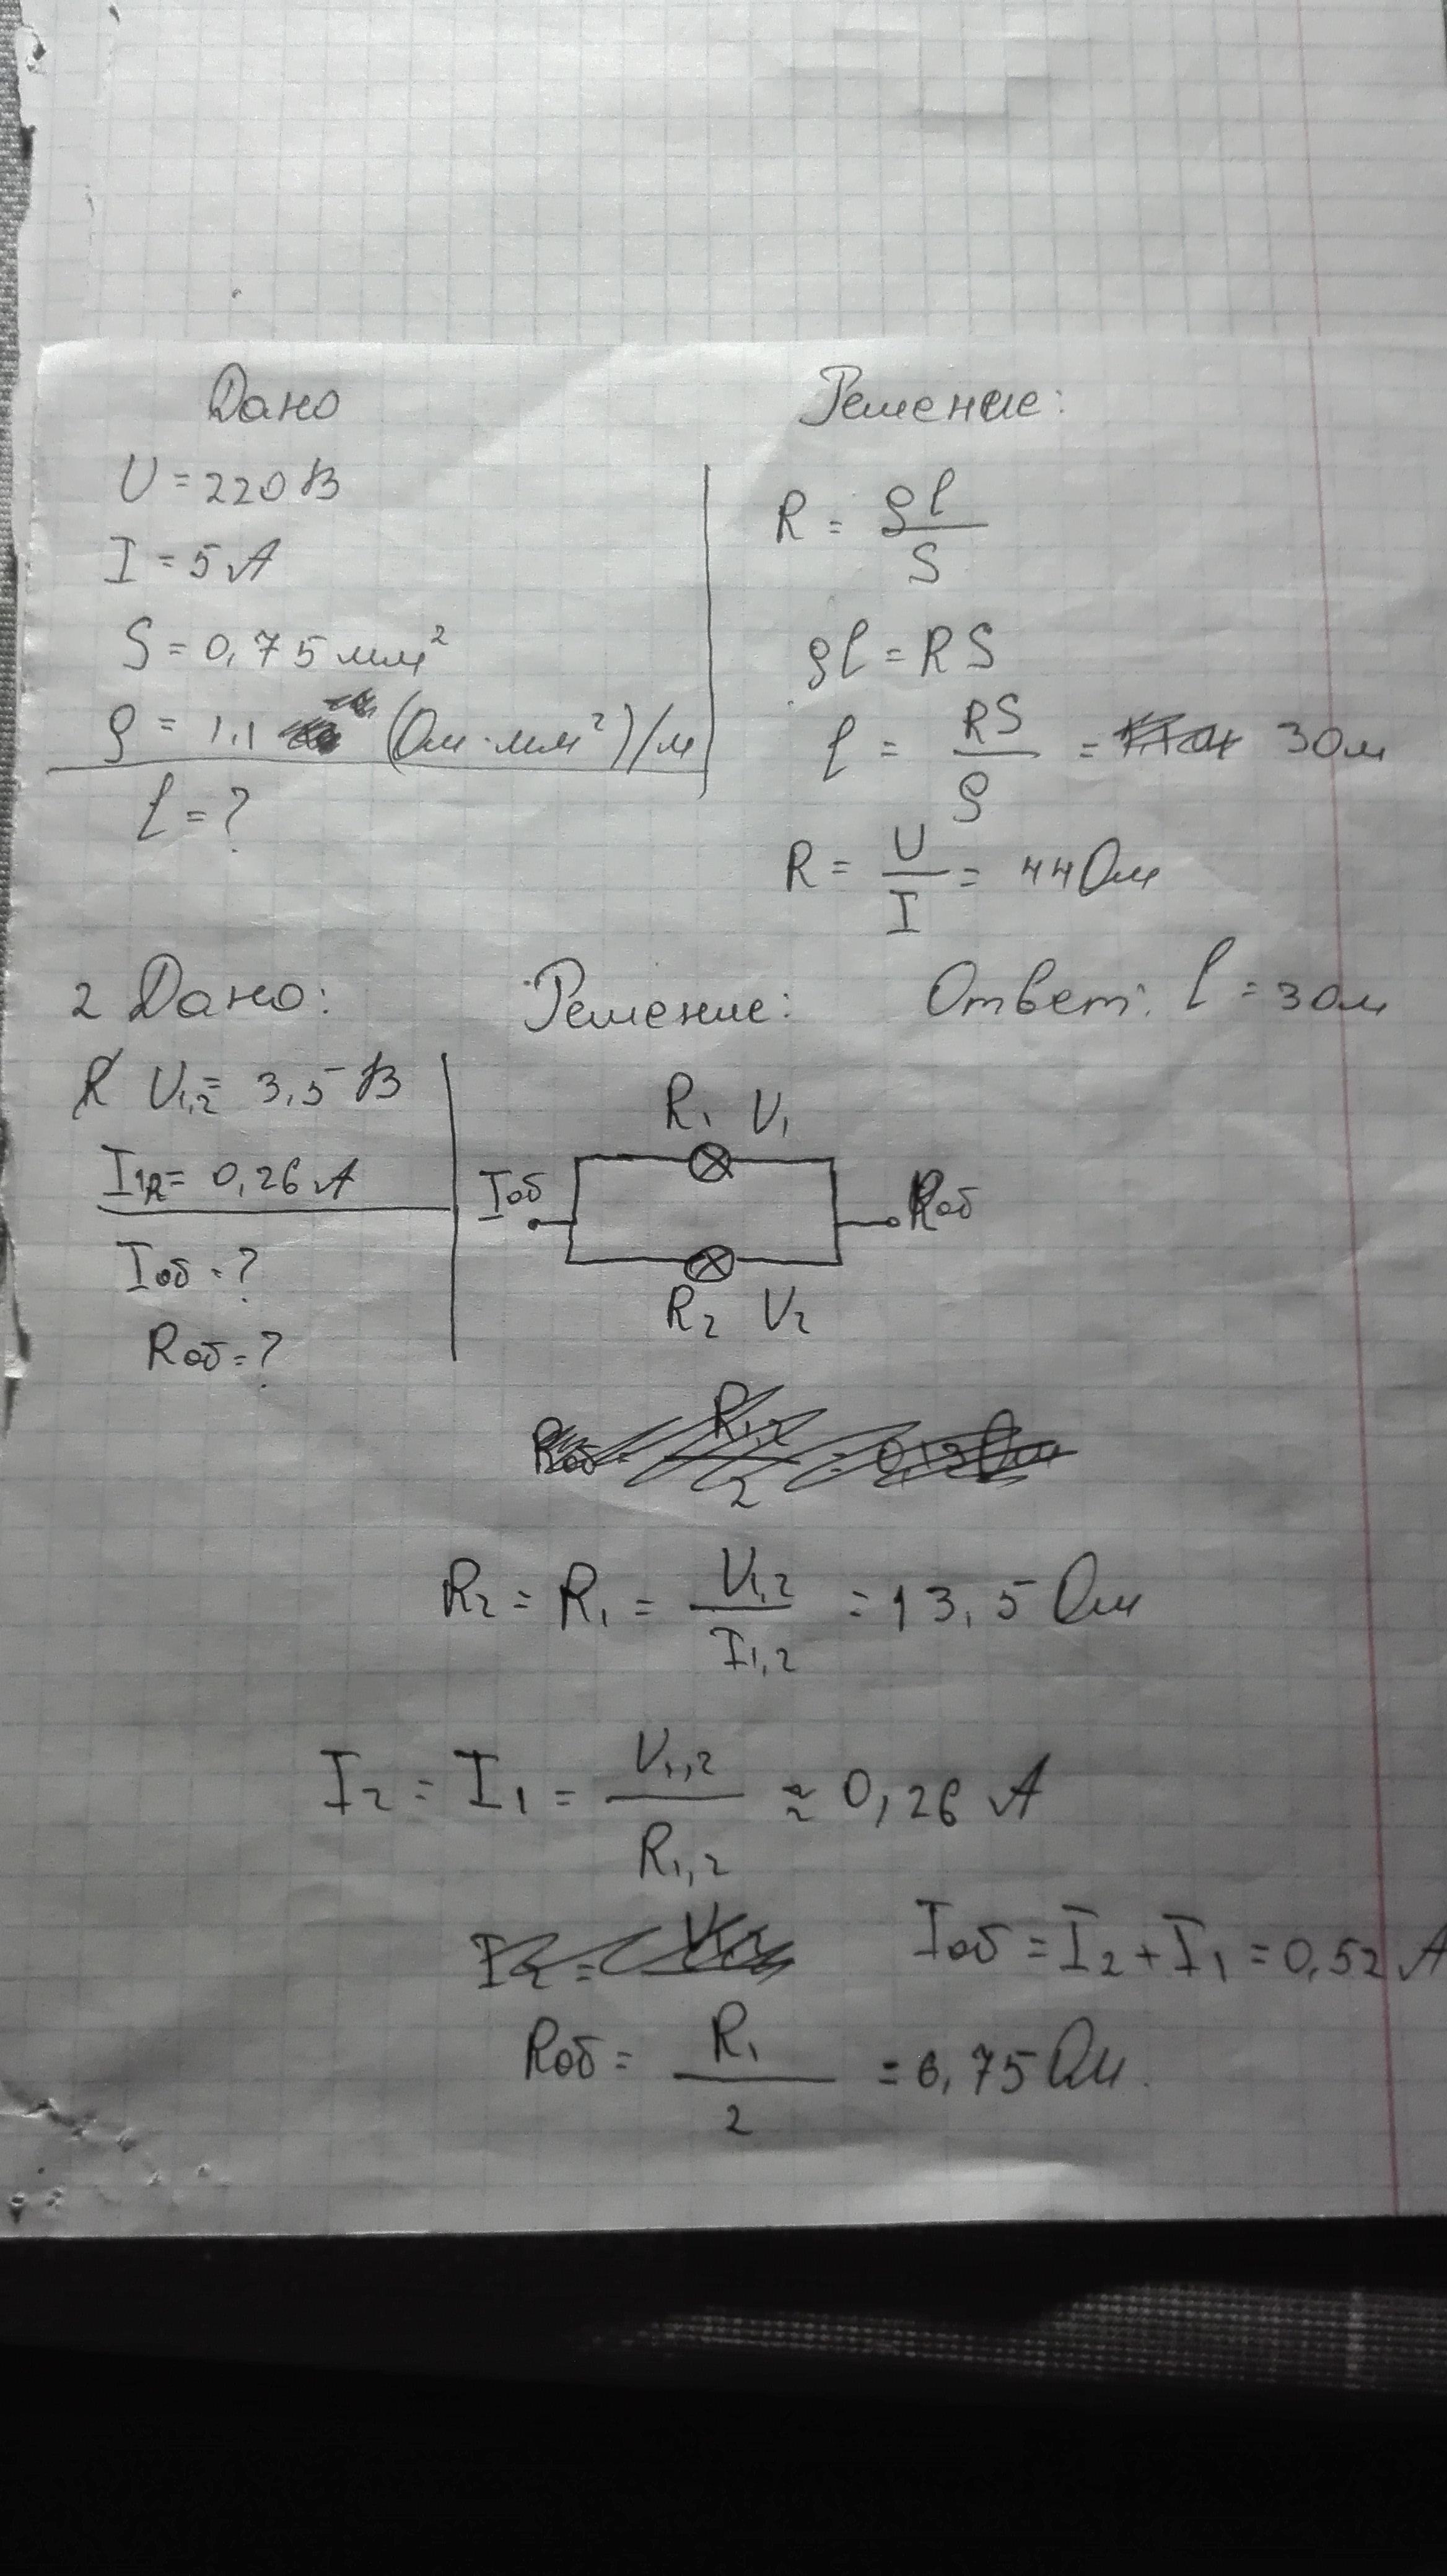 Дано
U = 220 В
I = 5 А
S = 0,75 мм²
ρ = 1,1 (Ом·мм²)/м
l = ?
Решение:
R = ρl / S
ρl = RS
l = RS / ρ = 30м
R = U / I = 44Ом
Ответ: l = 30м
2 Дано:
U₁,₂ = 3,5 В
I₁,₂ = 0,26 А
Iоб = ?
Rоб = ?
Решение:
R₁ U₁
Iоб Rоб
R₂ U₂
Rоб = R₁,₂ / 2
R₂ = R₁ = U₁,₂ / I₁,₂ = 13,5 Ом
I₂ = I₁ = U₁,₂ / R₁,₂ ≈ 0,26 А
Iоб = I₂ + I₁ = 0,52 А
Rоб = R₁ / 2 = 6,75 Ом.